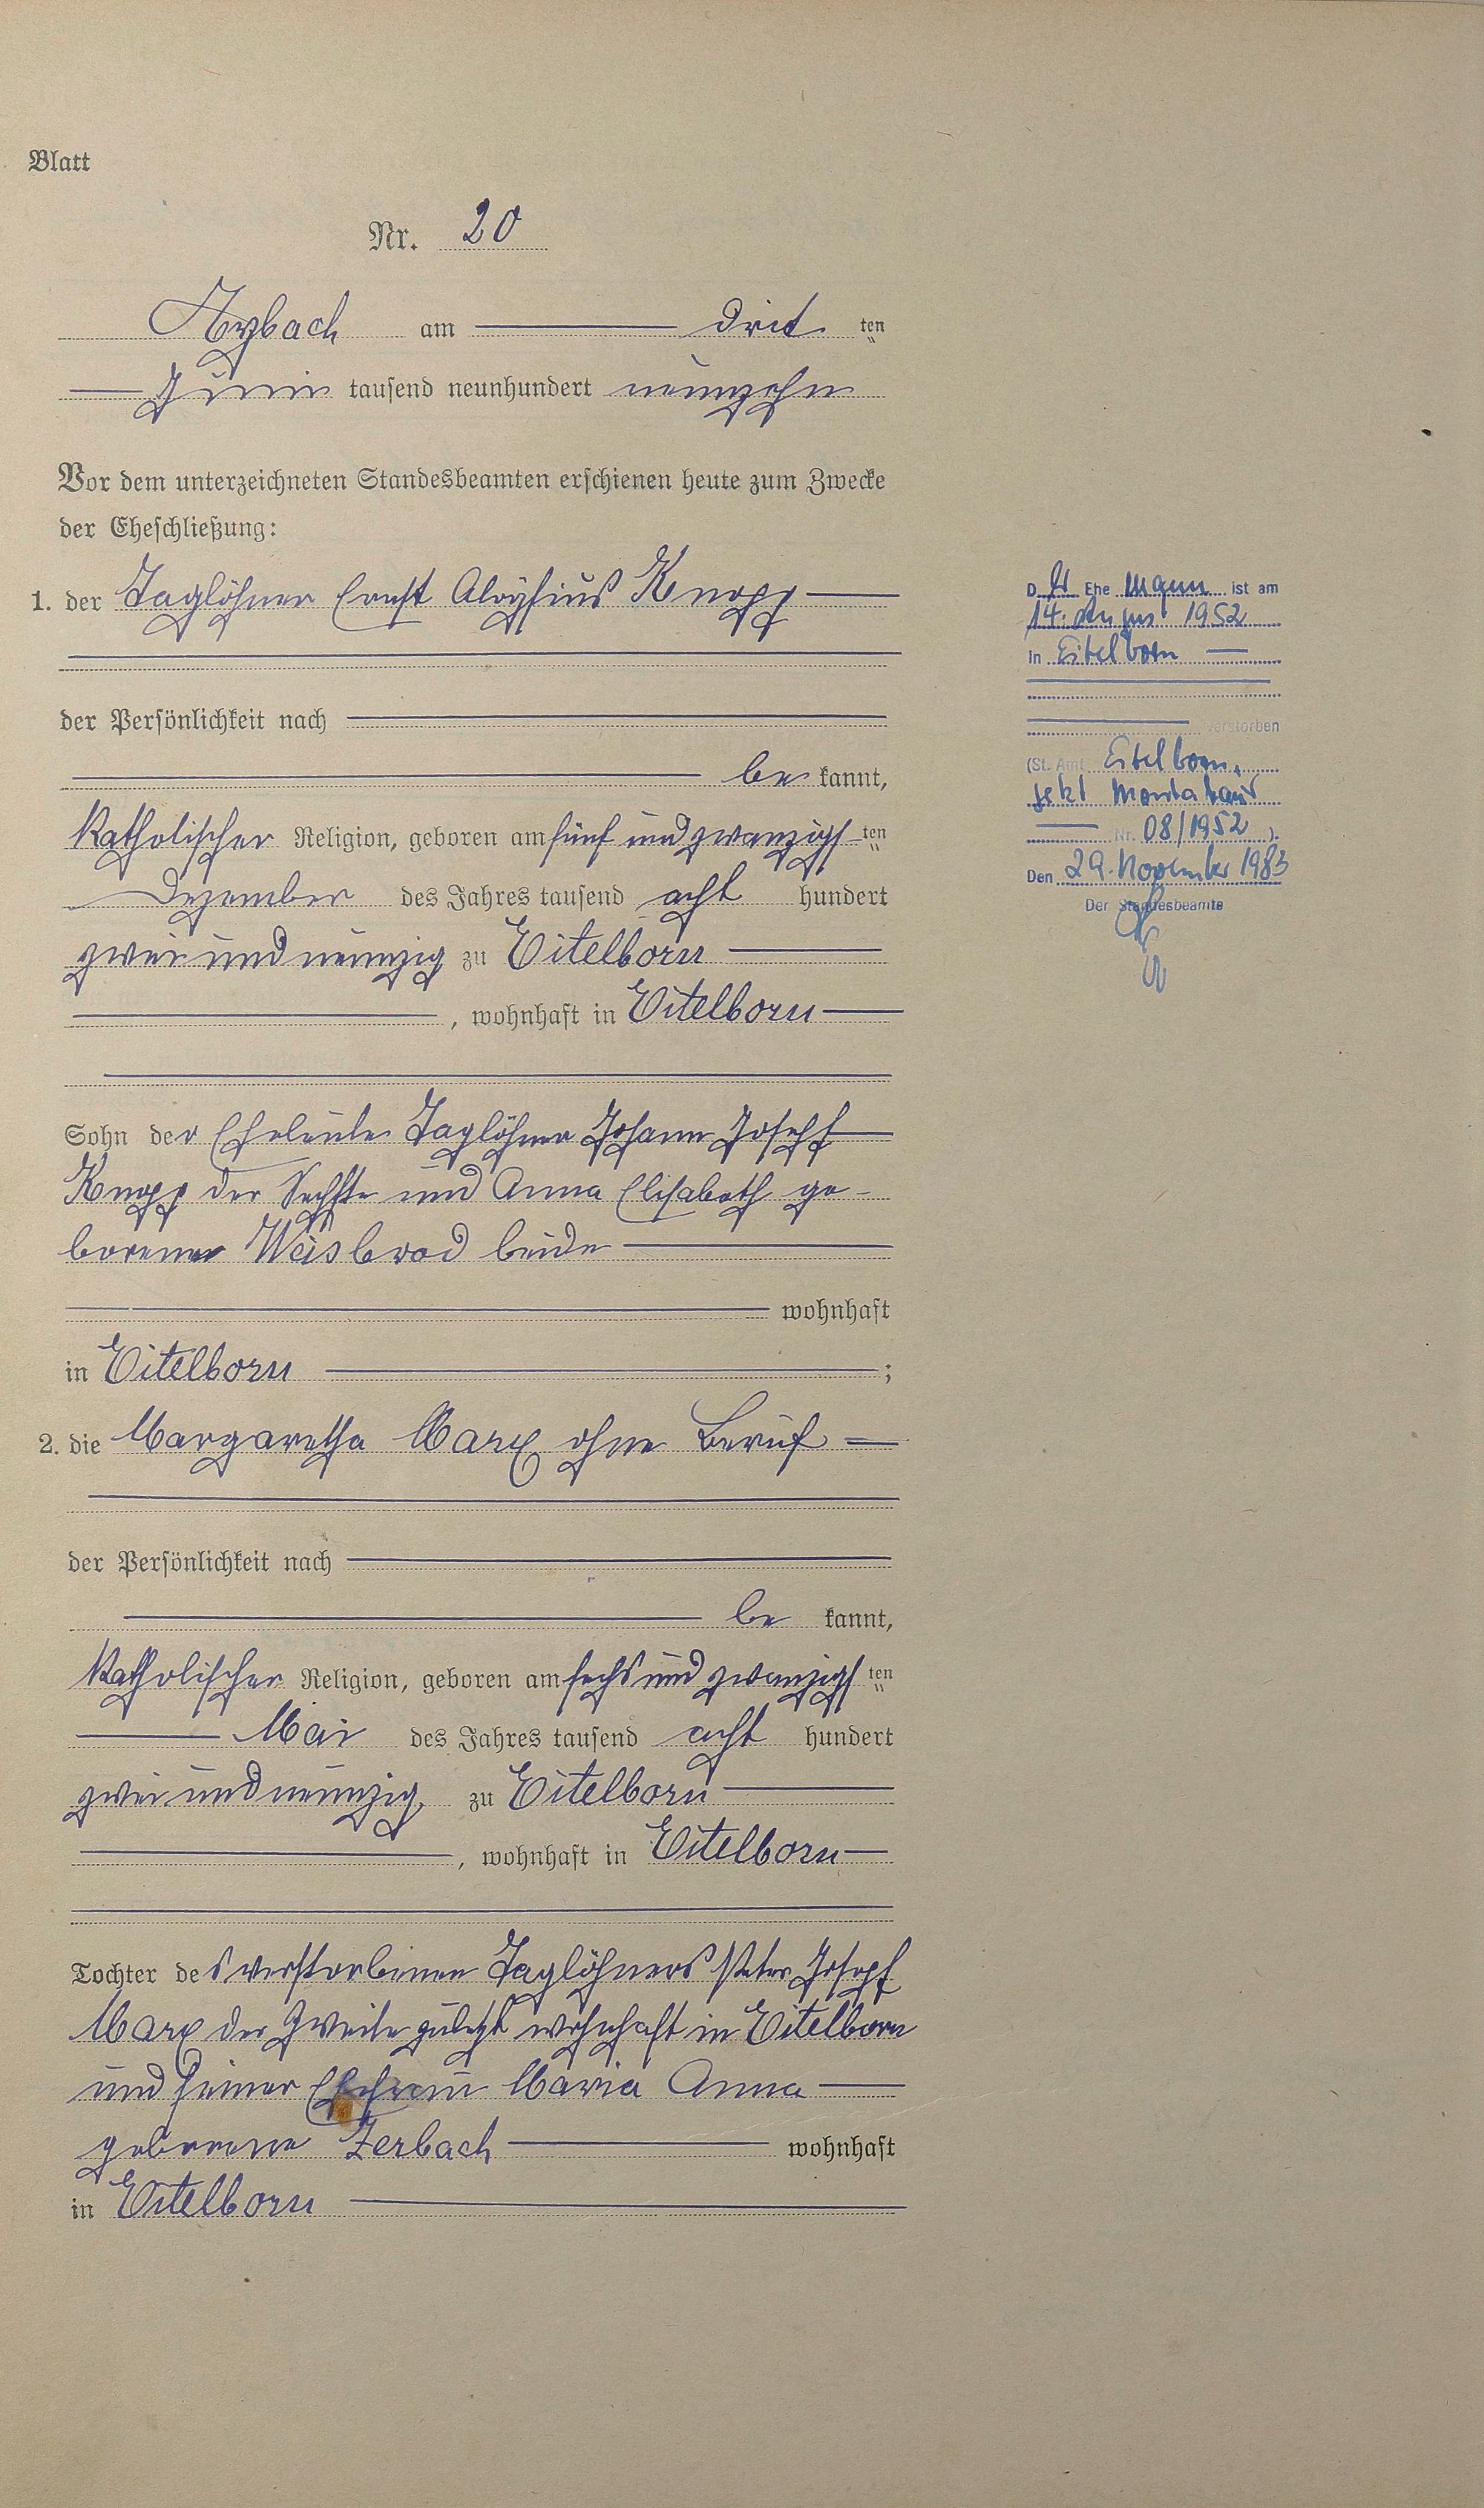 Blatt
Nr. 20
Arzbach am drit ten
Juni tausend neunhundert neunzehn
Vor dem unterzeichneten Standesbeamten erschienen heute zum Zwecke
der Eheschließung:
1. der Taglöhner Ernst Aloysius Knopp
der Persönlichkeit nach
be kannt,
katholischer Religion, geboren am fünf und zwanzigs ten
Dezember des Jahres tausend acht hundert
zwei und neunzig zu Eitelborn
, wohnhaft in Eitelborn
Sohn der Eheleute Taglöhner Johann Joseph
Knopp der Sechste und Anna Elisabeth ge-
borener Weisbrod beide
wohnhaft
in Eitelborn ;
2. die Margaretha Marx ohne Beruf
der Persönlichkeit nach
be kannt,
katholischer Religion, geboren am sechs und zwanzigs ten
Mai des Jahres tausend acht hundert
zwei und neunzig zu Eitelborn
, wohnhaft in Eitelborn
Tochter des verstorbenen Taglöhners Peter Joseph
Marx der Zweite zuletzt wohnhaft in Eitelborn
und seiner Ehefrau Maria Anna
geborene Zerbach wohnhaft
in Eitelborn
D er Ehe mann ist am
14. 1952
in Eitelborn
verstorben
(St. Amt Eitelborn,
jetzt Montabaur
Nr. 08/1952 ).
Den 29. November 1983
Der Standesbeamte